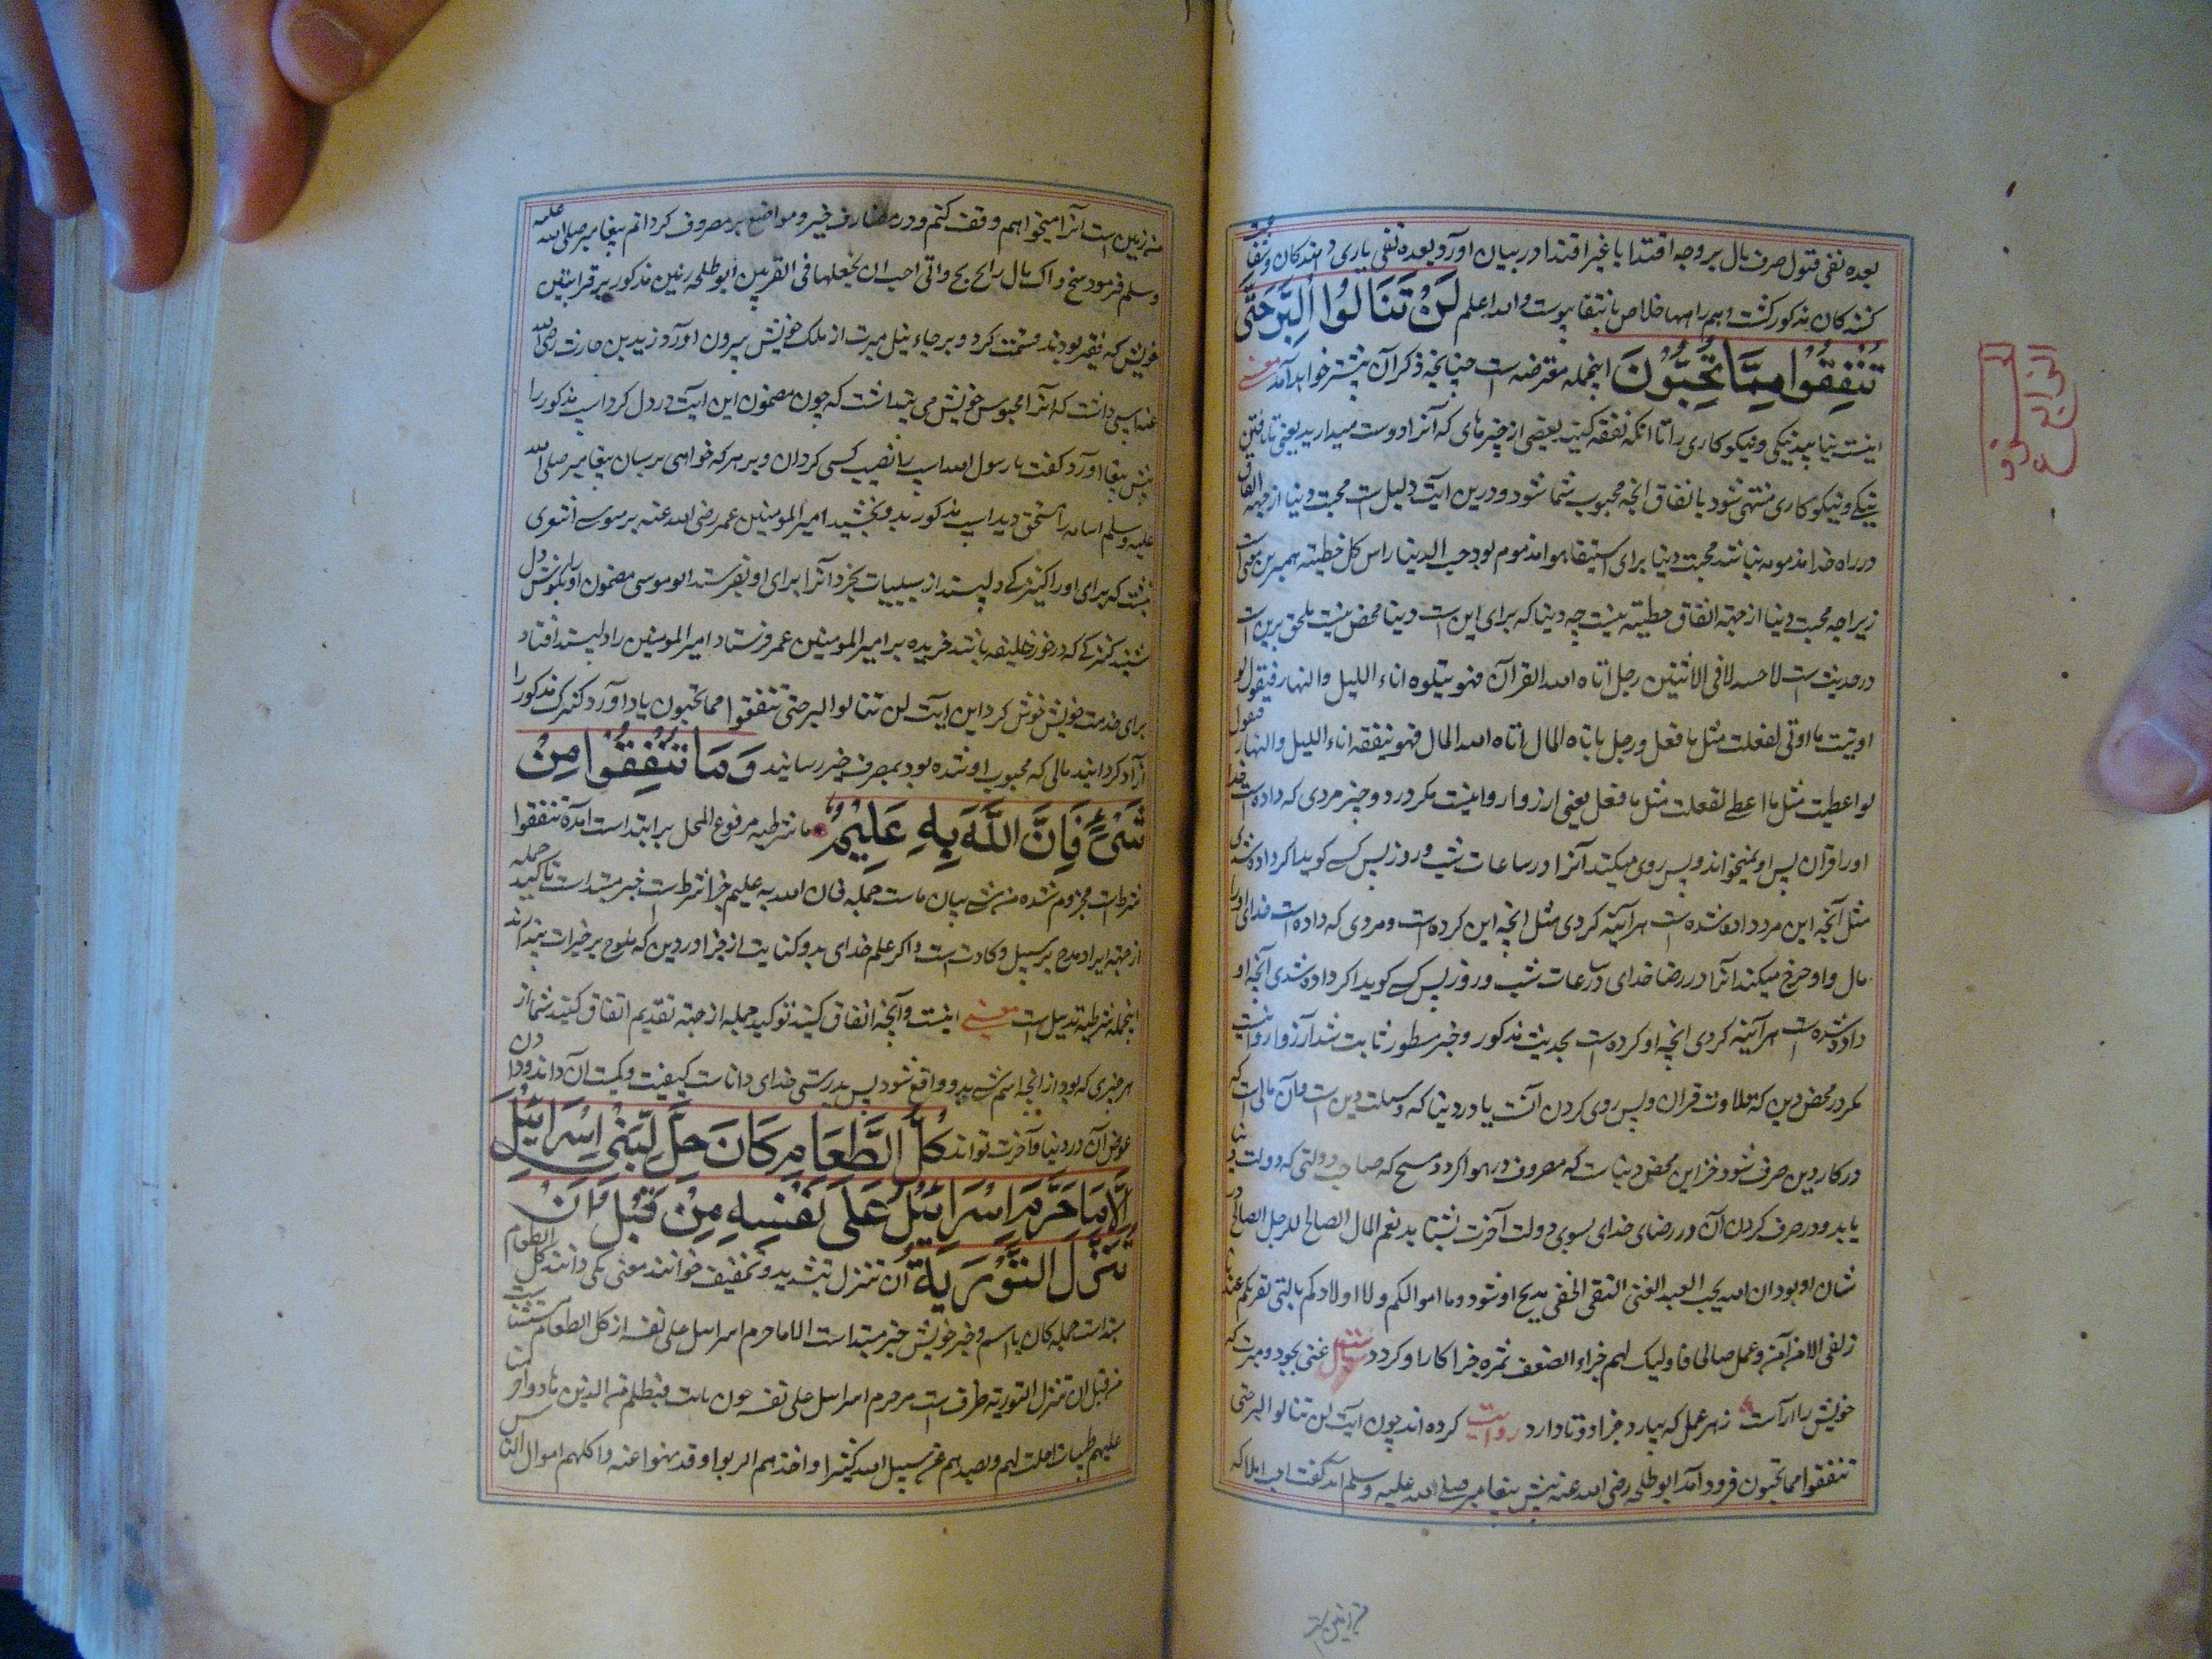 بعده نفی قبول صرف مال بر وجه افتدا یا غیر افتدا در بیان آورد و بعده نفی یاری دهندکان
کنندکان مذکور کشت و هم را مها خلاص بانتفا پیوست والله اعلم لَنْ تَنَالُوا الْبِرَّ حَتَّى
تُنْفِقُوا مِمَّا تُحِبُّونَ اینجمله معترضه است چنانچه ذکر آن پیشتر خواهد آمد معنی
اینست نیابید نیکی و نیکو کاری را تا آنکه نفقه کنید بعضی از چیزهای که آنرا دوست میدارید یعنی تا یافتن
نیکی و نیکو کاری منتهی شود بانفاق آنچه محبوب شما شود و درین آیت دلیل است محبت دنیا از جهة انفاق
در راه خدا مذموم نباشد محبت دنیا برای استیفا هوا مذموم بود حب الدنیا راس کل خطیئة همبرین
زیراچه محبت دنیا از جهة انفاق خطیئه نیست چه دنیا که برای این است دنیا محض نیست ملحق بدین است
در حدیث است لا حسد الا فی الاثنین رجل اتاه الله القرآن فهو یتلوه اناء اللیل والنهار فیقول لو
اوتیت ما اوتی لفعلت مثل ما فعل ورجل اتاه الله المال فهو ینفقه اناء اللیل والنهار فیقول
لو اعطیت مثل ما اعطی لفعلت مثل ما فعل یعنی آرزو روا نیست مکر در دو چیز مردی که داده است خدا
او را قرآن پس او میخواند و پس روی میکند آنرا در ساعات شب و روز پس کسی کوید اکر داده شدی
مثل آنچه این مرد داده شده است هر آینه کردی مثل آنچه این کرده است و مردی که داده است خدای او را
مال و او خرج میکند آنرا در رضا خدای در ساعات شب و روز پس کسی کوید اکر داده شدی آنچه او
داده شده است هر آینه کردی آنچه او کرده است بحدیث مذکور و خبر مسطور ثابت شد آرزو روا نیست
مکر در محض دین که تلاوت قرآن و پس روی کردن آنست یا در دنیا که وسیلت دین است و آن مالی است که
در کار دین صرف شود جز این محض دنیاست که مصروف در هوا کردد صاحب دولتی که دولت
یابد و در صرف کردن آن در رضای خدای بسوی دولت آخرت شتابد نعم المال الصالح للرجل الصالح در
شان او بود ان الله یحب العبد الغنی التقی الخفی مدیح او شود وما اموالکم ولا اولادکم بالتی تقربکم عندنا
زلفی الا من آمن وعمل صالحا فاولئک لهم جزاء الضعف ثمره جزا کار او کردد غنی بجود و مبرت که
خویش را آراست ز هر عمل که بیارد جزا دوتا دارد روایت کرده اند چون آیت لن تنالوا البر حتی
تنفقوا مما تحبون فرود آمد ابو طلحه رضی الله عنه پیش پیغامبر صلی الله علیه وسلم آمد کفت احب املاکه
من زمین است آنرا میخواهم وقف کنم و در مصارف خیر و مواضع بر مصروف کردانم پیغامبر صلی الله علیه
وسلم فرمود بخ ذاک مال رابح وانی احب ان تجعلها فی الاقربین ابو طلحه زمین مذکور بر قرابتین
خویش که فقیر بودند قسمت کرد و برجاء نیل مبرت از ملک خویش بیرون آورد و زید بن حارث رضی الله
عنه اسپی داشت که آنرا محبوس خویش می پنداشت که چون مضمون این آیت در دل کرد اسپ مذکور را
پیش پیغامبر آورد کفت یا رسول الله اسپ را نصیب کسی کردان و بر هر که خواهی برسان پیغامبر صلی الله
علیه وسلم اسامه را مستحق دید اسپ مذکور بدو بخشید امیر المومنین عمر رضی الله عنه بر موسی اشعری
نبشت که برای او را کنیزکی دلپسند از سبیات بخرد آنرا برای او بفرستد ابو موسی مضمون
شنید کنیزکی که در خور خلیفه باشد خریده بر امیر المومنین عمر فرستاد امیر المومنین را دلپسند افتاد
برای خدمت خویش خوش کرد این آیت لن تنالوا البر حتی تنفقوا مما تحبون یاد آورد کنیزک مذکور را
آزاد کردانید مالی که محبوب او شده بود بمصرف خیر رسانید وَمَا تُنْفِقُوا مِنْ
شَيْءٍ فَإِنَّ اللَّهَ بِهِ عَلِيمٌ ما شرطیه مرفوع المحل بر ابتداست آمده تنفقوا
شرط است مجزوم شده من شیء بیان ماست جمله فان الله به علیم جزا شرط است خبر مبتداست تاکید جمله
از جهة ایراد مدح بر سبیل وکادت است و ذکر علم خدای بدو کنایت از جزا
اینجمله شرطیه تذییل است معنی اینست و آنچه انفاق کنید توکید جمله از جهة تقدیم انفاق کنید شما از
هر چیزی که بود از آنچه اسم شیء بدو واقع شود پس بدرستی خدای داناست کیفیت و کمیت آن داند و دادن
عوض آن در دنیا و آخرت تواند كُلُّ الطَّعَامِ كَانَ حِلًّا لِبَنِي إِسْرَائِيلَ
إِلَّا مَا حَرَّمَ إِسْرَائِيلُ عَلَى نَفْسِهِ مِنْ قَبْلِ أَنْ
تُنَزَّلَ التَّوْرٰىةُ ان تنزل بتشدید و تخفیف خوانند معنی یکی دانند کل الطعام
مبتداست جمله کان با اسم و خبر خویش خبر مبتداست الا ما حرم اسرایل علی نفسه از کل الطعام مستثناست
من قبل ان تنزل التوریة ظرف است مر حرم اسرایل علی نفسه چون بابت فبظلم من الذین هادوا
علیهم طیبات احلت لهم وبصدهم عن سبیل الله کثیرا واخذهم الربوا وقد نهوا عنه واکلهم اموال الناس